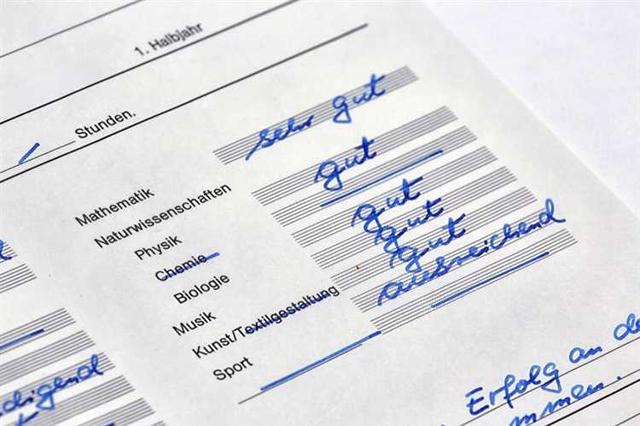 1. Halbjahr
Stunden.
Mathematik sehr gut
Naturwissenschaften
Physik gut
Chemie
Biologie gut
Musik gut
Kunst/Textilgestaltung gut
Sport ausreichend
digend
Erfolg an de
mmen.